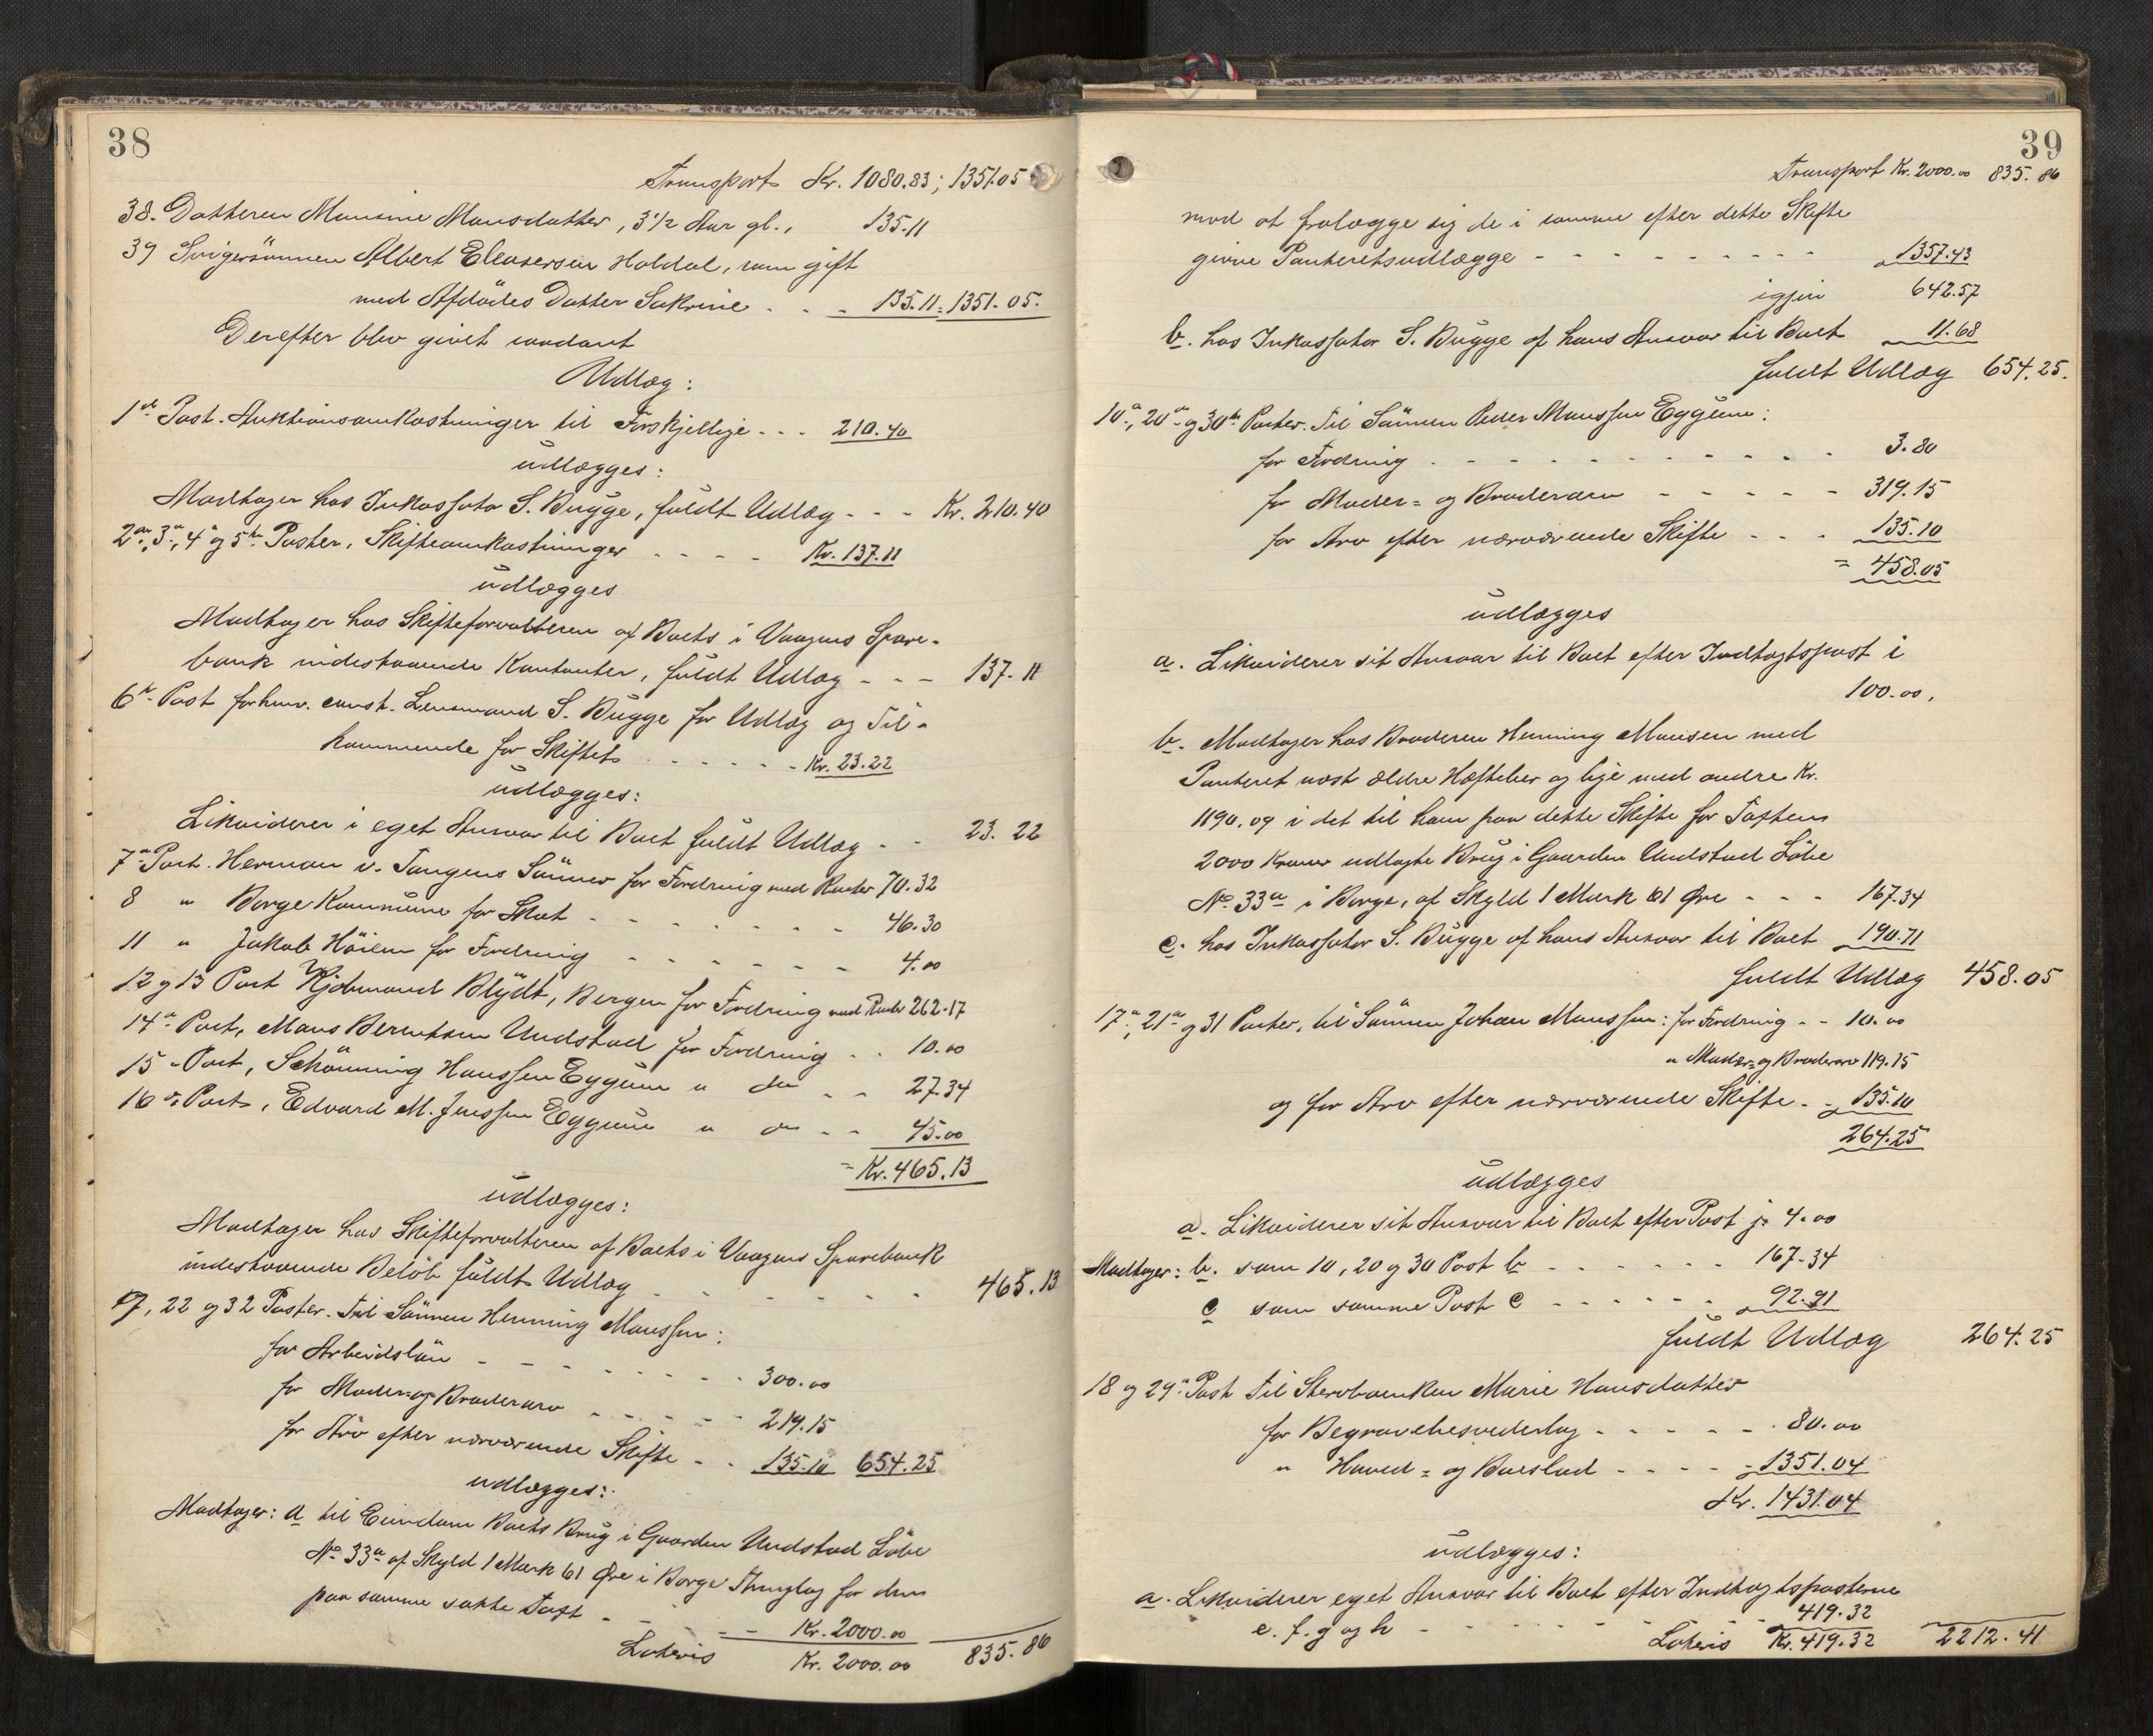 38
Transport Kr. 1080.83; 1351.05
38. Datteren Mansine Mansdatter, 3½ Aar gl., 135.11
39 Svigersönnen Albert Eleasersen Holdal, som gift
med Afdödes Datter Sakrine - - - 135.11 = 1351.05.
Derefter blev givet saadant
Udlæg:
1ste Post. Auktionsomkostninger til Forskjellige - - - 210.40
udlægges:
Modtager hos Inkassator S. Bugge, fuldt Udlæg - - - Kr. 210.40
2den, 3die, 4de og 5te Poster, Skifteomkostninger - - - - Kr. 137.11
udlægges
Modtager hos Skifteforvalteren af Boets i Vaagens Spare-
bank indestaaende Kontanter, fuldt Udlæg - - - 137.11
6te Post forhenv. const. Lensmand S. Bugge for Udlæg og Til-
kommende for Skiftet - - - - - - Kr. 23.22
udlægges:
Likviderer i eget Ansvar til Boet fuldt Udlæg - - 23.22
7de Post. Herman v. Tangens Sönner for Fordring med Renter 70.32
8 " Borge Kommune for Skat - - - - - - - 46.30
11 " Jakob Höien for Fordring - - - - - - - 4.00
12 og 13 Post Kjöbmand Blÿdt, Bergen for Fordring med Renter 262.17
14de Post, Mans Berentsen Undstad for Fordring - - 10.00
15 - Post, Schönning Hanssen Eggum " do - - 27.34
16de Post, Edvard M. Jenssen Eggum " do - - 45.00
= Kr. 465.13
udlægges:
Modtager hos Skifteforvalteren af Boets i Vaagens Sparebank
indestaaende Belöb fuldt Udlæg - - - - - - - 465.13
9, 22 og 32 Poster. Til Sönnen Henning Manssen:
for Arbeidslön - - - - - - - - 300.00
for Moder- og Broderarv - - - - - 219.15
for Arv efter nærværende Skifte - - 135.10 654.25
udlægges:
Modtager: a til Eiendom Boets Brug i Gaarden Undstad Löbe
No 33a af Skyld 1 Mark 61 Øre i Borge Thinglag for den
paa samme satte Taxt - - - - Kr. 2000.00
Lateris Kr. 2000.00 835.86
39
Transport Kr. 2000.00 835.86
mod at fralægge sig de i samme efter dette Skifte
givne Panteretsudlægge - - - - - - - - - 1357.43
igjen 642.57
b. hos Inkassator S. Bugge af hans Ansvar til Boet 11.68
fuldt Udlæg 654.25.
10de, 20de og 30te Poster. Til Sönnen Peder Manssen Eggum:
for Fordring - - - - - - - - - - - 3.80
for Moder- og Broderarv - - - - - 319.15
for Arv efter nærværende Skifte - - - 135.10
= 458.05
udlægges
a. Likviderer sit Ansvar til Boet efter Indtagtspost i
100.00.
b. Modtager hos Broderen Henning Mansen med
Panteret næst ældre Hæftelser og lige med andre Kr.
1190.09 i det til ham paa dette Skifte for Taxten
2000 Kroner udlagte Brug i Gaarden Undstad Löbe
No 33a i Borge, af Skyld 1 Mark 61 Øre - - - 167.34
c. hos Inkassator S. Bugge af hans Ansvar til Boet 190.71
fuldt Udlæg 458.05
17de, 21de og 31 Poster, til Sönnen Johan Manssen: for Fordring - - 10.00
" Moder- og Broderarv 119.15
og for Arv efter nærværende Skifte - - 135.10
264.25
udlægges
a. Likviderer sit Ansvar til Boet efter Post j. 4.00
Modtager: b. som 10, 20 og 30 Post b - - - - - - 167.34
c som samme Post c - - - - - - 92.91
fuldt Udlæg 264.25
18 og 29de Post til Stervboenken Marie Hansdatter
for Begravelsesvederlag - - - - - 80.00
" Hoved- og Boeslod - - - - - 1351.04
Kr. 1431.04
udlægges:
a. Likviderer eget Ansvar til Boet efter Indtagtsposterne
e. f. g og h - - - - - - - 419.32
Lateris Kr. 419.32 2212.41